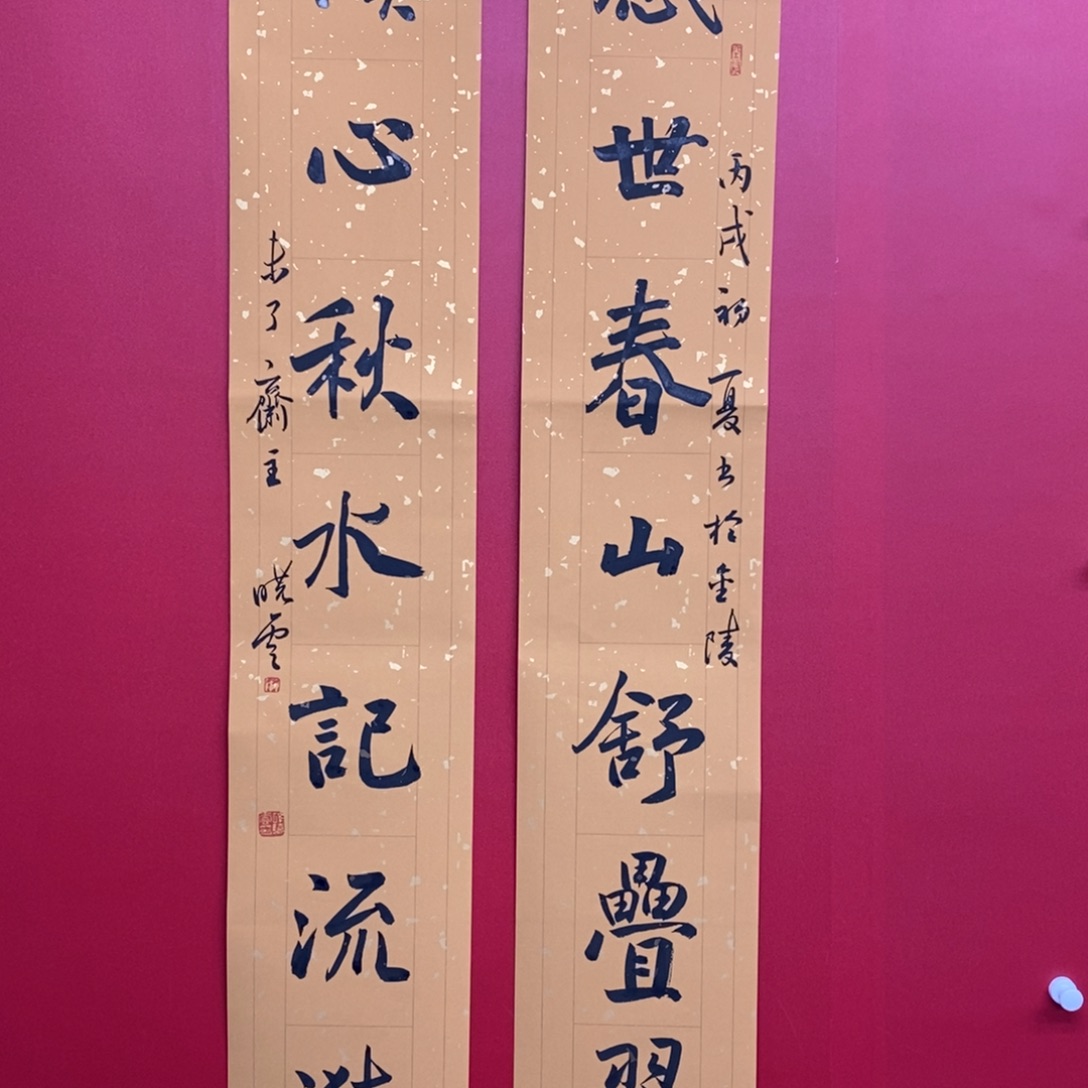 世春山舒疊翠
丙戌初夏书於金陵
心秋水記流
未了齋主
晓雲